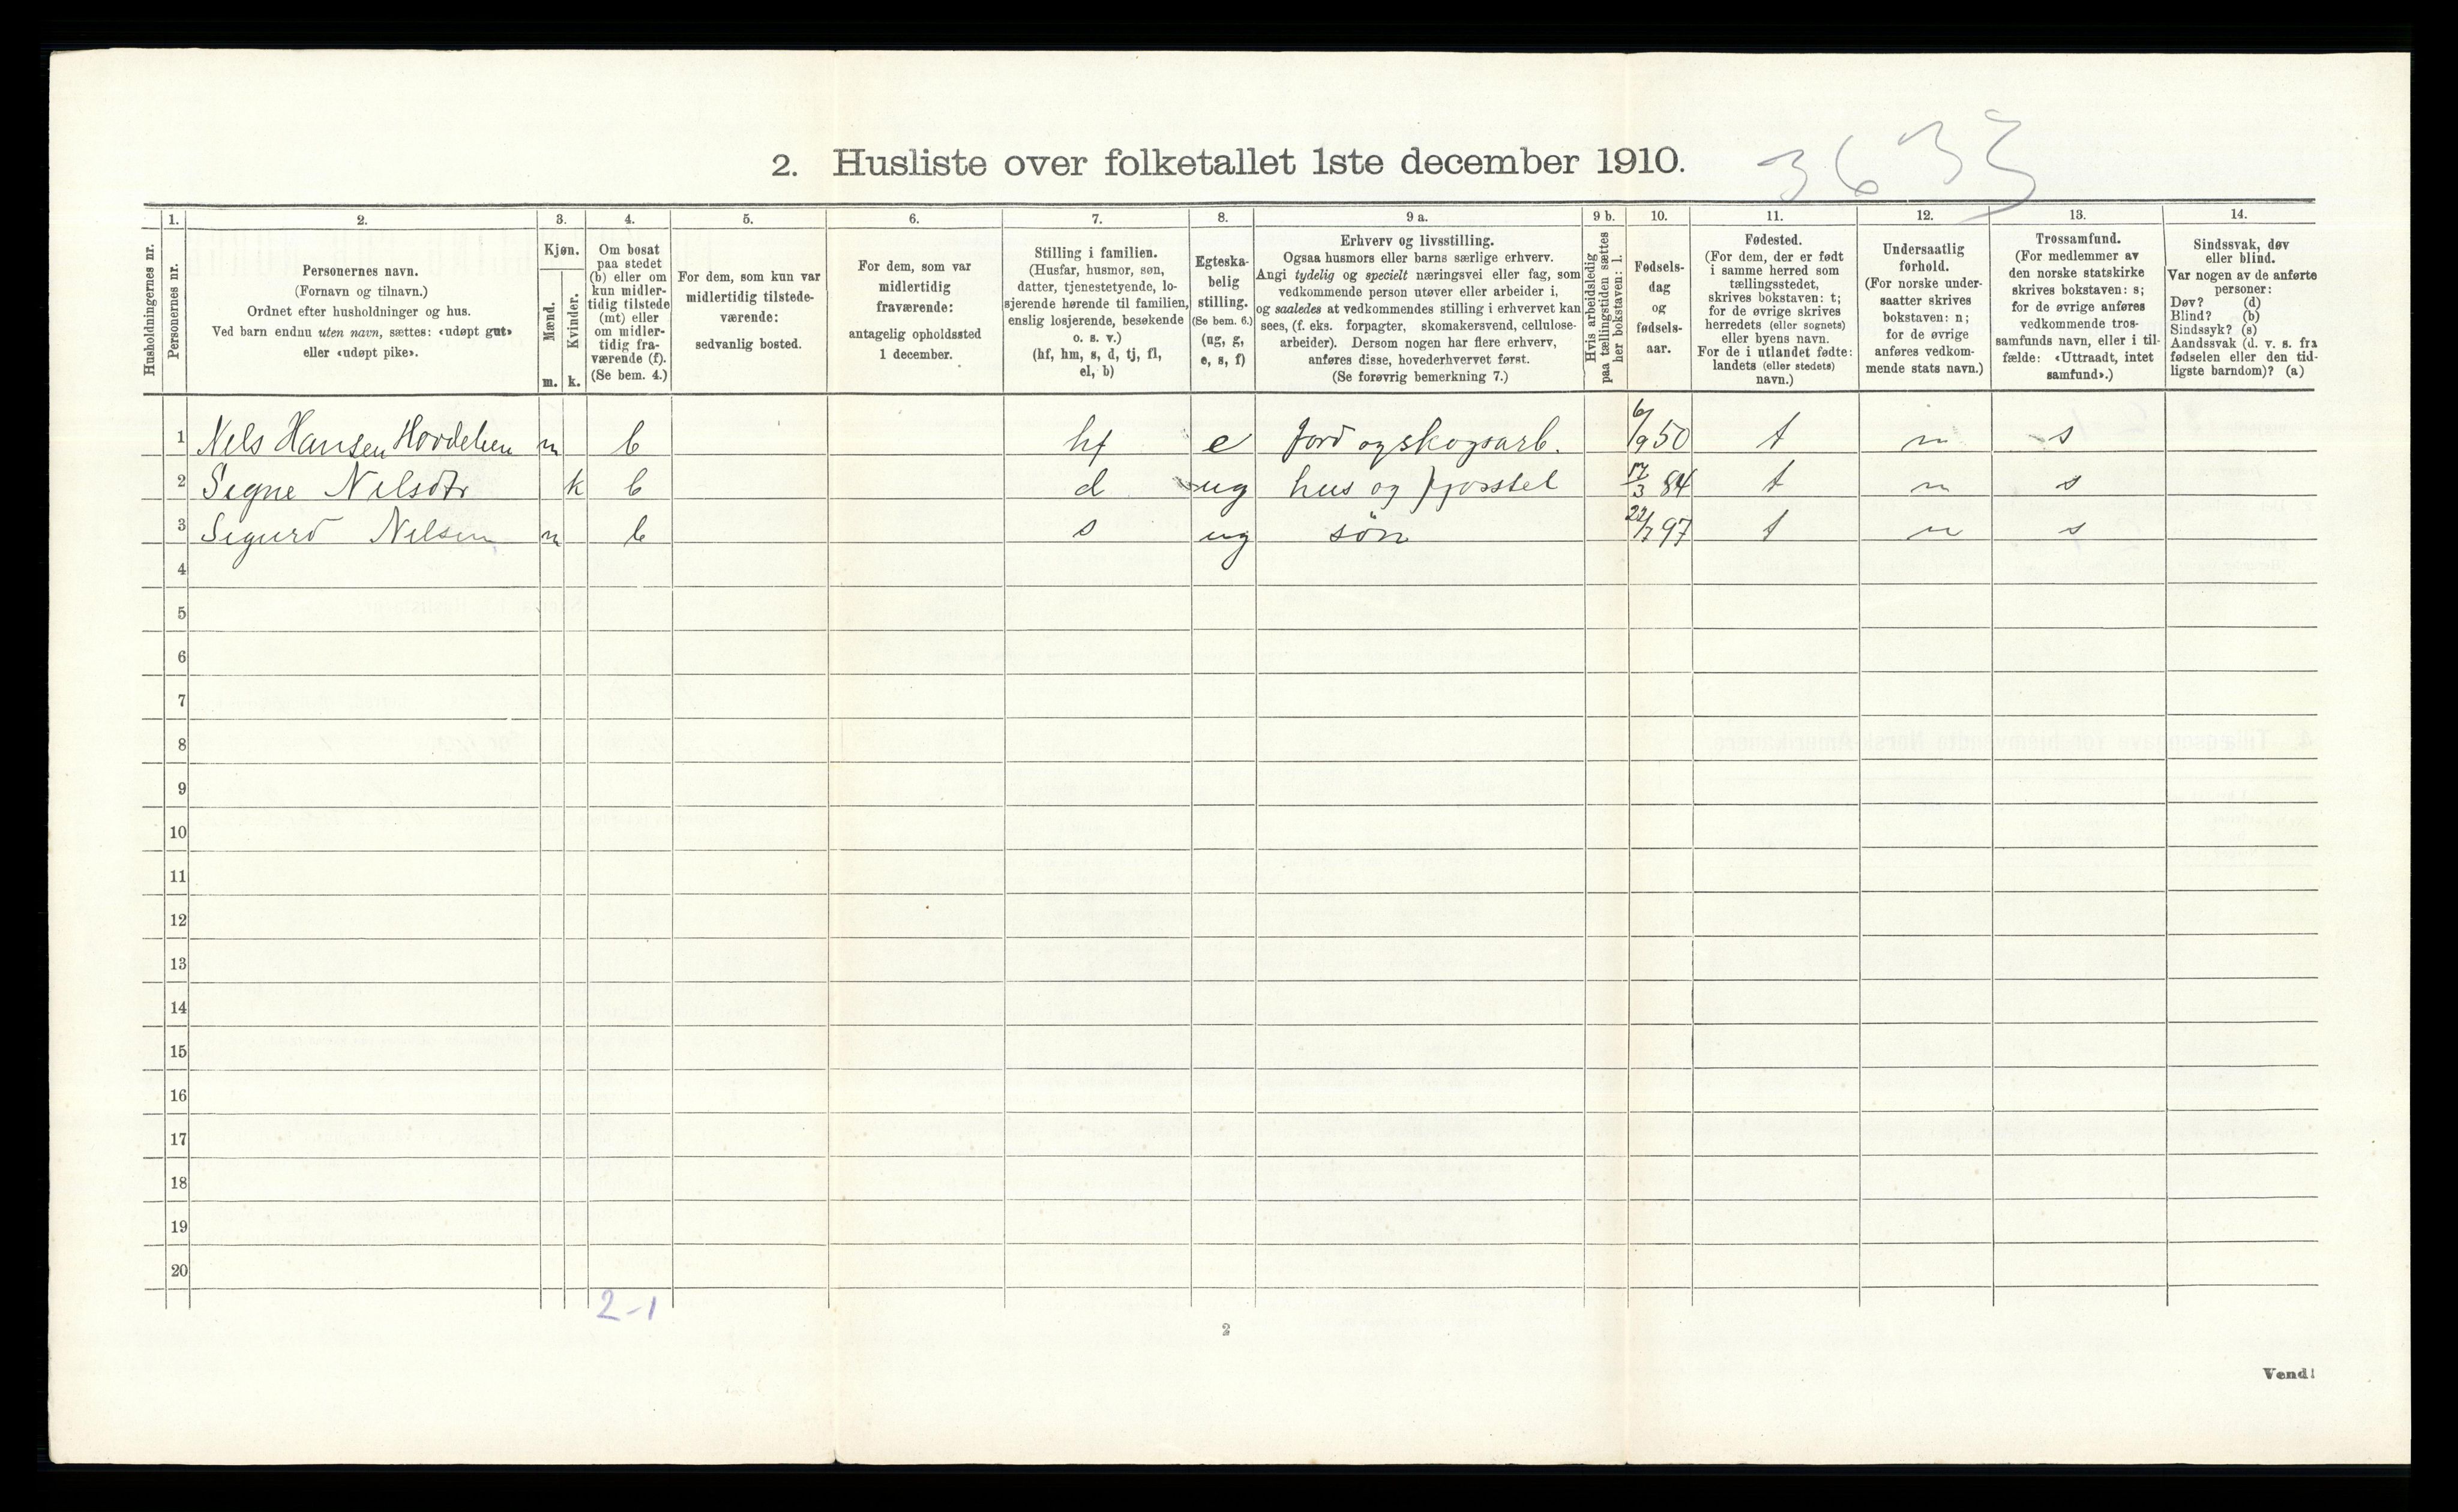 3633
2. Husliste over folketallet 1ste december 1910.
Husholdningernes nr.
1.
Personernes nr.
2.
Personernes navn.
(Fornavn og tilnavn.)
Ordnet efter husholdninger og hus.
Ved barn endnu uten navn, sættes: «udøpt gut»
eller «udøpt pike».
3.
Kjøn.
Mænd.
m.
Kvinder.
k.
4.
Om bosat
paa stedet
(b) eller om
kun midler-
tidig tilstede
(mt) eller
om midler-
tidig fra-
værende (f).
(Se bem. 4.)
5.
For dem, som kun var
midlertidig tilstede-
værende:
sedvanlig bosted.
6.
For dem, som var
midlertidig
fraværende:
antagelig opholdssted
1 december.
7.
Stilling i familien.
(Husfar, husmor, søn,
datter, tjenestetyende, lo-
sjerende hørende til familien,
enslig losjerende, besøkende
o. s. v.)
(hf, hm, s, d, tj, fl,
el, b)
8.
Egteska-
belig
stilling.
(Se bem. 6.)
(ug, g,
e, s, f)
9 a.
Erhverv og livsstilling.
Ogsaa husmors eller barns særlige erhverv.
Angi tydelig og specielt næringsvei eller fag, som
vedkommende person utøver eller arbeider i,
og saaledes at vedkommendes stilling i erhvervet kan
sees, (f. eks. forpagter, skomakersvend, cellulose-
arbeider). Dersom nogen har flere erhverv,
anføres disse, hovederhvervet først.
(Se forøvrig bemerkning 7.)
9 b.
Hvis arbeidsledig
paa tællingstiden sættes
her bokstaven: l.
10.
Fødsels-
dag
og
fødsels-
aar.
11.
Fødested.
(For dem, der er født
i samme herred som
tællingsstedet,
skrives bokstaven: t;
for de øvrige skrives
herredets (eller sognets)
eller byens navn.
For de i utlandet fødte:
landets (eller stedets)
navn.)
12.
Undersaatlig
forhold.
(For norske under-
saatter skrives
bokstaven: n;
for de øvrige
anføres vedkom-
mende stats navn.)
13.
Trossamfund.
(For medlemmer av
den norske statskirke
skrives bokstaven: s;
for de øvrige anføres
vedkommende tros-
samfunds navn, eller i til-
fælde: «Uttraadt, intet
samfund».)
14.
Sindssvak, døv
eller blind.
Var nogen av de anførte
personer:
Døv? (d)
Blind? (b)
Sindssyk? (s)
Aandssvak (d. v. s. fra
fødselen eller den tid-
ligste barndom)? (a)
1 Nels Hansen Hovdelien m b hf e Jord og skogsarb. 6/9 50 t n s
2 Segne Nilsdtr k b d ug hus og fjosstel 17/3 84 t n s
3 Sigurd Nilsen m b s ug søn 22/7 97 t n s
4
5
6
7
8
9
10
11
12
13
14
15
16
17
18
19
20
2-1
2
Vend!